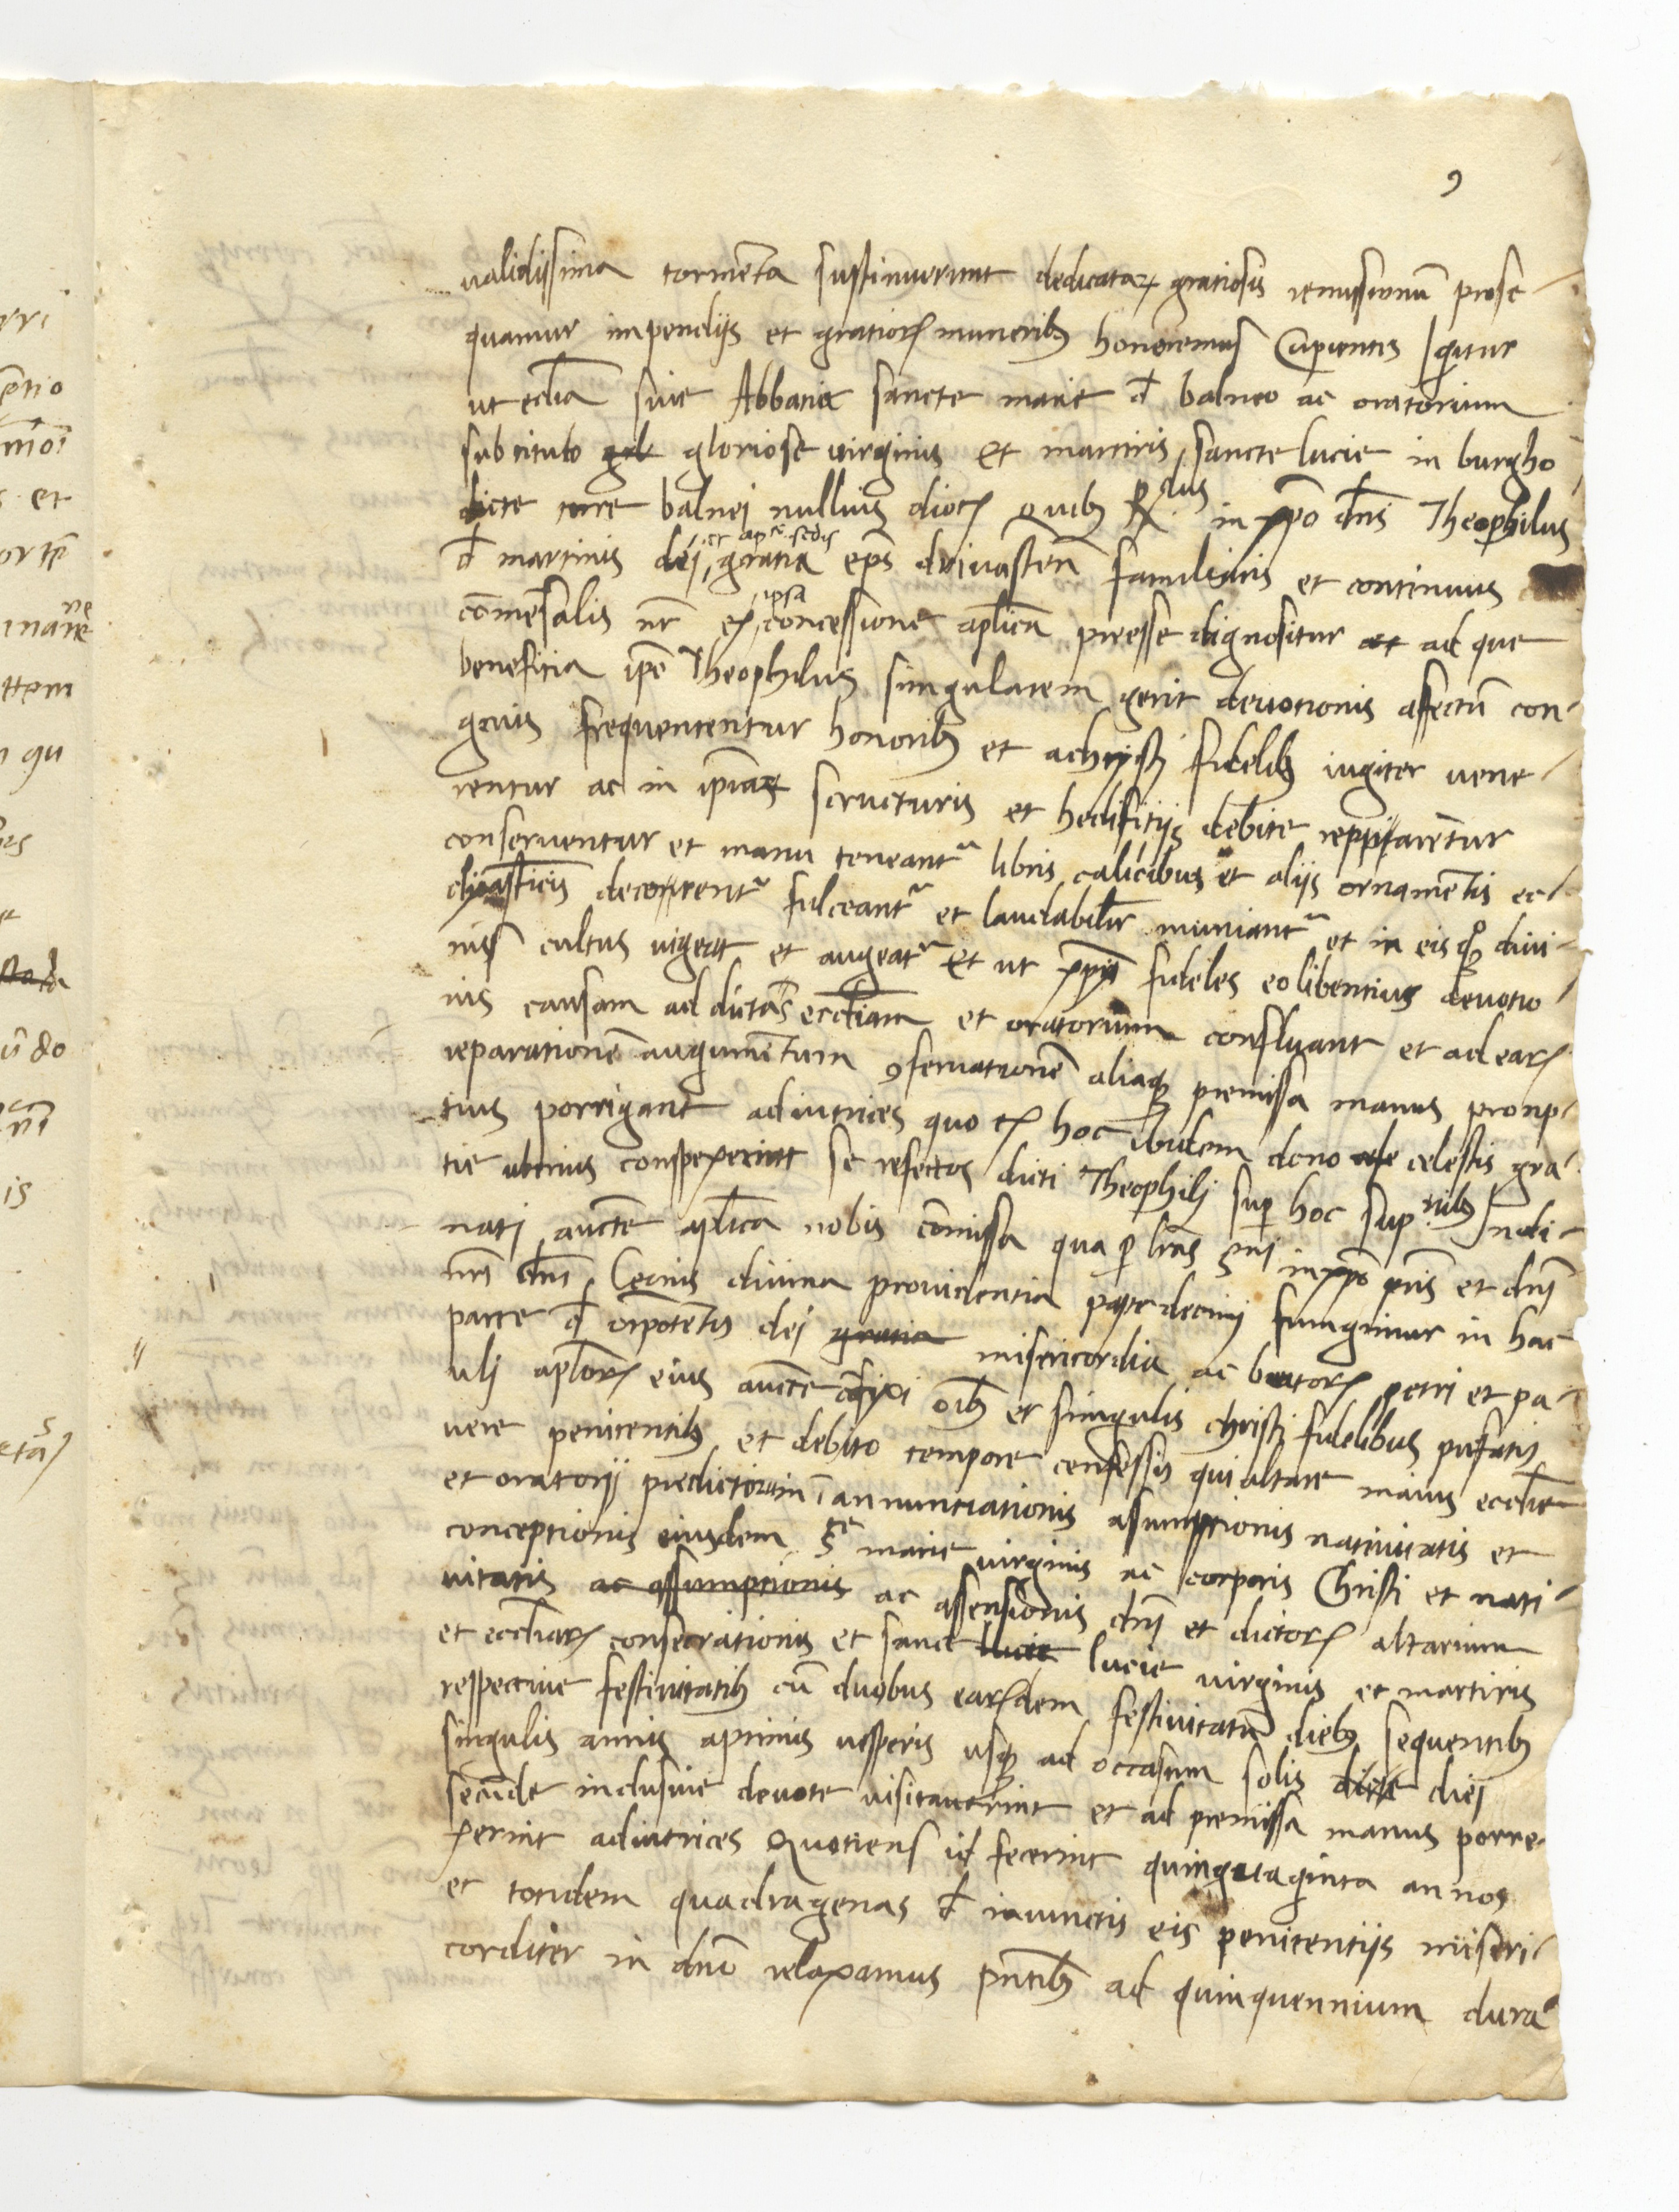 9
validissima tormenta sustinuerunt dedicataꝝ gratiosis remissionũ prose
quamur impendijs et gratioꝝ muneribꝫ honoremus Cupientes Igitur
ut ecclia siue Abbatia sancte marie đ balneo ac oratorium
sub titulo gloriose virginis et martiris sancte lucie in burgho
dicte terre balnej nullius dioc quibꝫ R.dus in xpo dns Theophilus
đ martinis dej et aplice sedis gratia eps driuasteñ familiaris et continuus
cõmẽsalis nr ex ipsa concessione aplica preesse dignositur ad que
benefitia ipe Theophilus singularem gerit deuotionis affectũ con
gruis frequententur honoribꝫ et a christj fidelibꝫ iugiter vene
rentur ac in structuris et hedifitijs debite reparẽtur
conseruentur et manu teneant libris calicibus et alijs ornamẽtis ec
clyasticis decorent fulceant et laudabilr muniant et in eis diui
nus cultus vigeat et augeat Et ut xpi fideles eo libentius deuotio
nis causam ad dictas eccliam et oratorium confluant et ad eaꝝ
reparationẽ augumẽtum ꝯseruationẽ aliaqꝫ premissa manus promp
tius porrigant adiutrices quo ex hoc ibidem dono celestis gra
tie uberius conspexerint se refectos dicti Theophilj sup hoc supnibꝫ Indi
nati aucte aplica nobis cõmissa qua p lras smi in xpo pris et dnj
nrj dnj Leonis diuina prouidentia pape decimj fungimur in hac
parte đ oĩpotẽtis dej gratia misericordia ac beatoꝝ petri et pa
ulj aploꝝ eius aucte cõfixi oĩbꝫ et singulis christj fidelibus prefatis
vere penitentibꝫ et debito tempore confessis qui altare maius ecclie
et oratorij predictorum in annunciationis assumptionis natiuitatis et
conceptionis eiusdem Ste marie virginis ac corporis Christi et nati
uitatis ac assumptionis ac assensionis dnj et dictoꝝ altarium
et eccliaꝝ consecrationis et sanct lucie lucie virginis et martiris
respectiue festiuitatibꝫ cũ duobus eaꝝdem festiuitatũ diebꝫ sequentibꝫ
singulis annis a primis vesperis usqꝫ ad occasum solis dicte diej
secũde inclusiue deuote visitauerint et ad premissa manus porre
xerint adiutrices Quotiens id fecerint quinquaginta annos
et totidem quadragenas đ iniunctis eis penitentijs miseri
corditer in dnõ relaxamus pñtibꝫ ad quinquennium dura